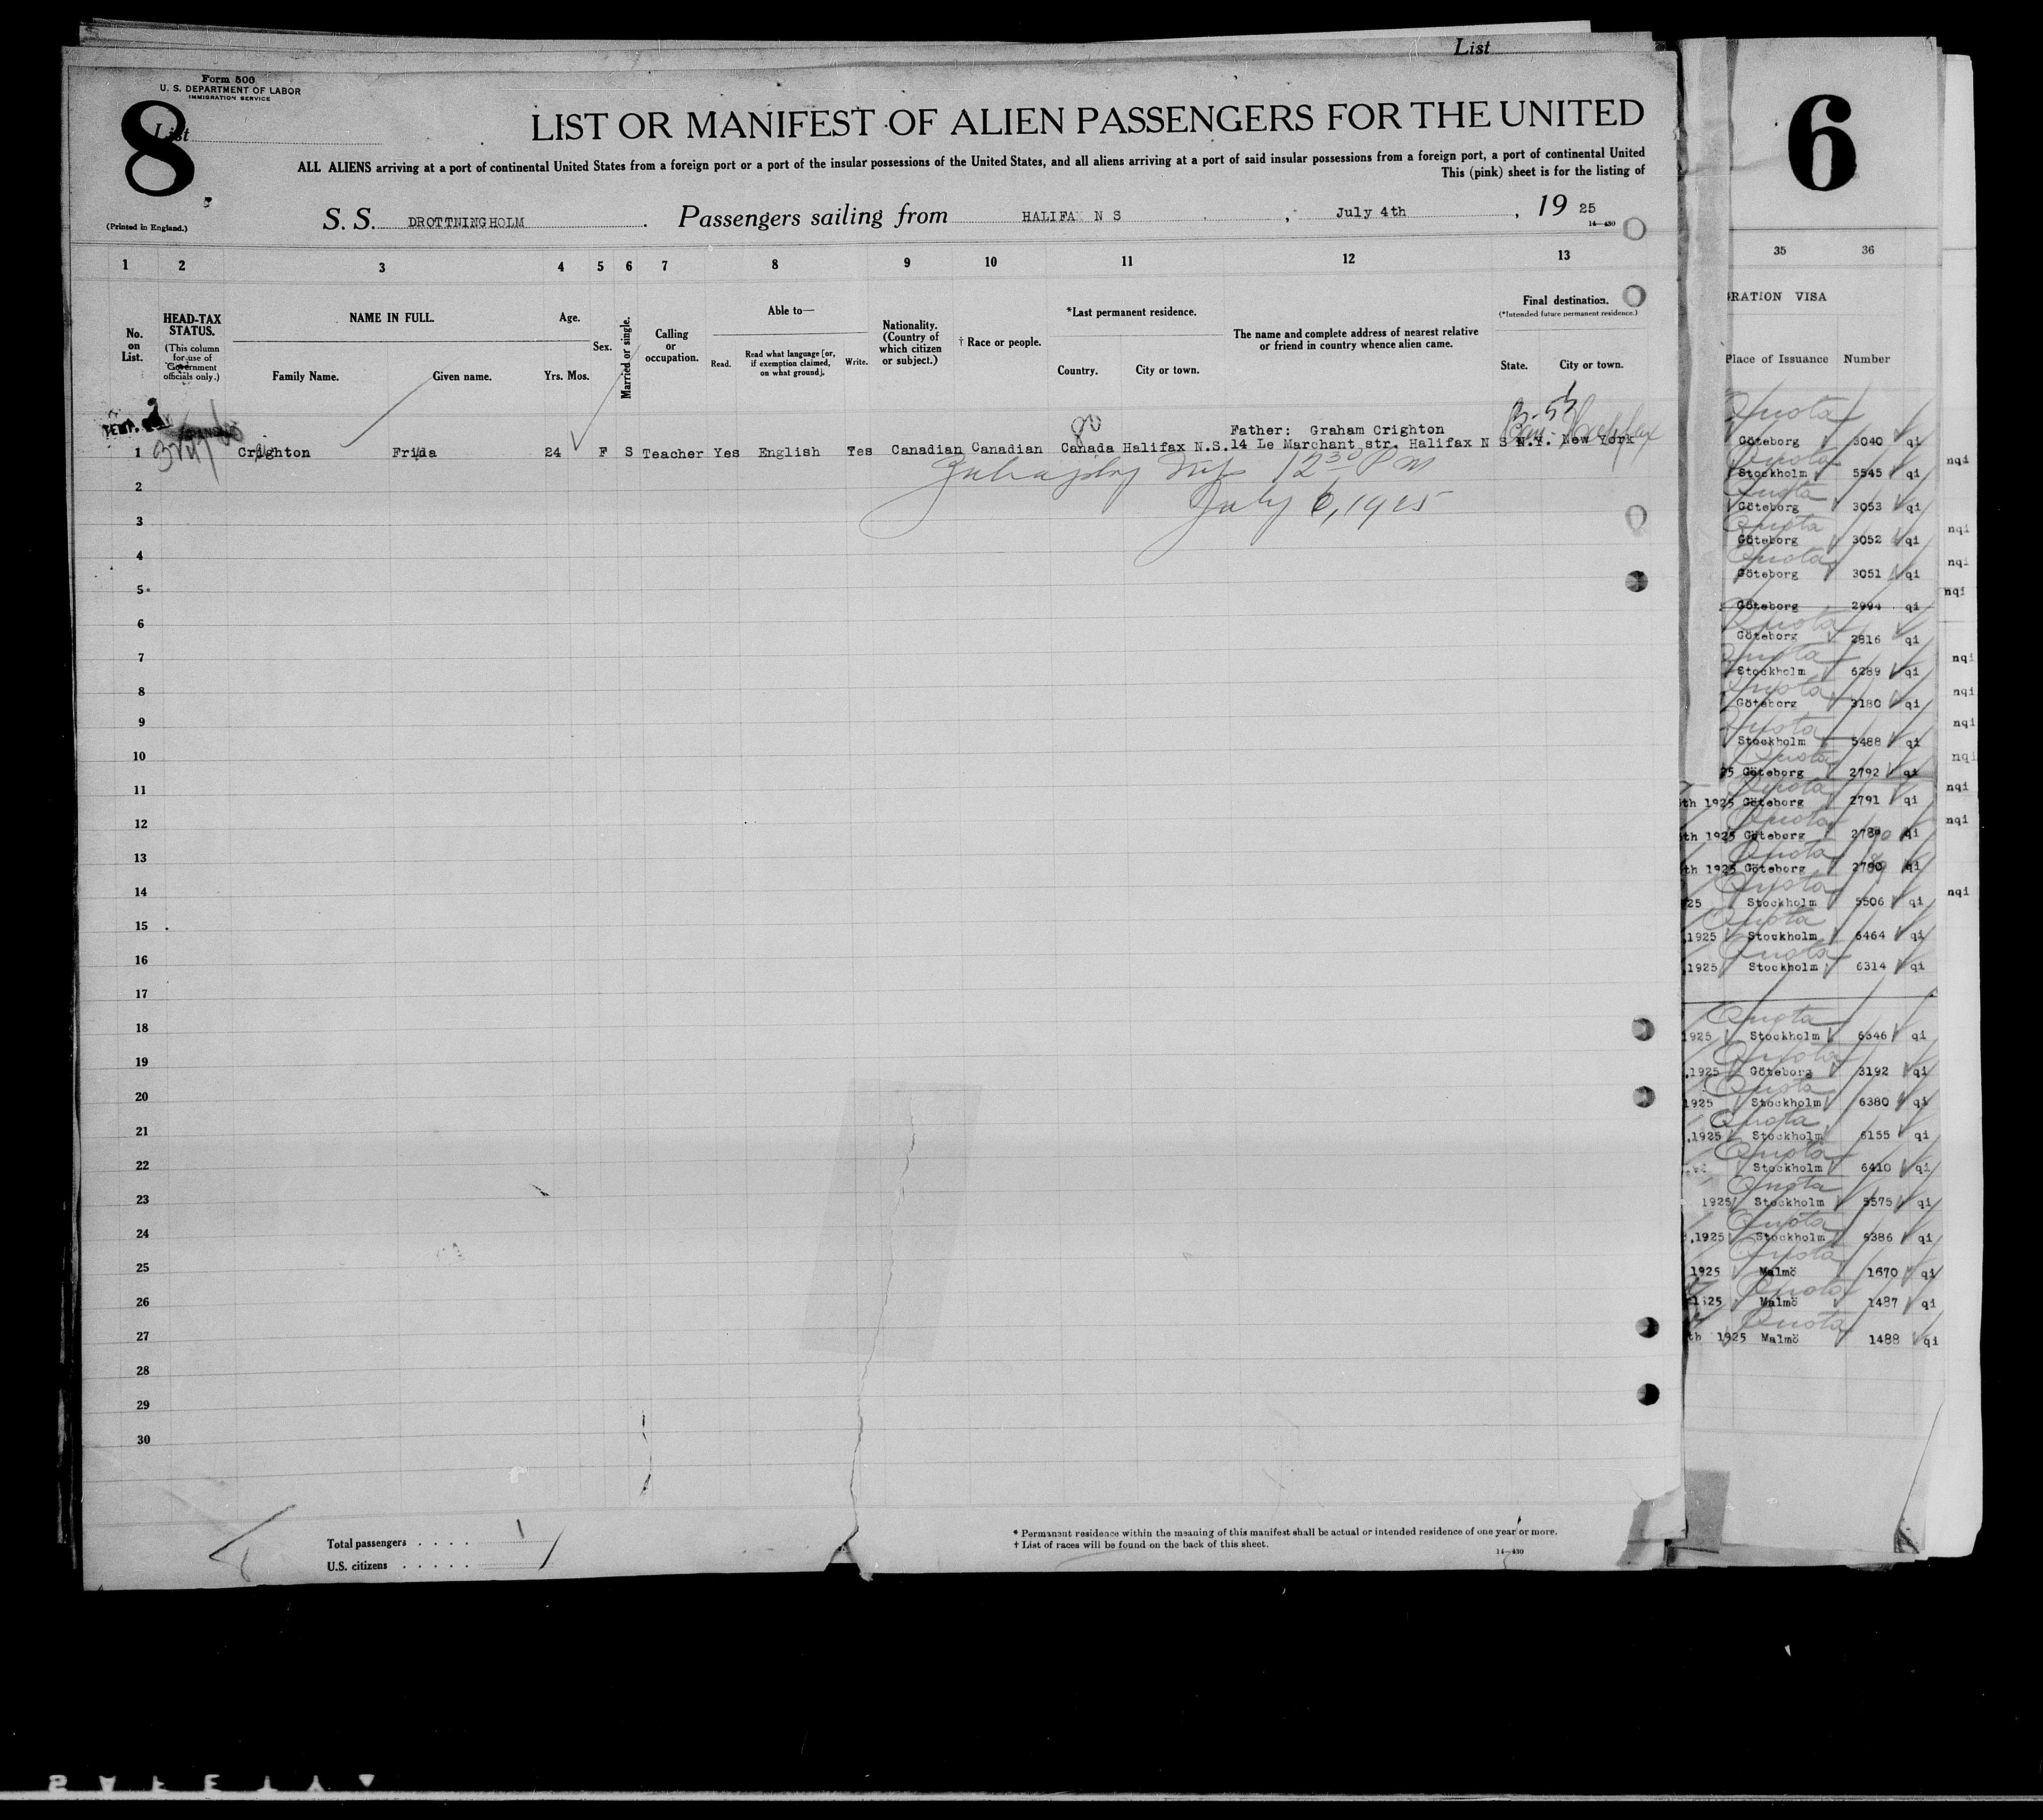 List
Form 500
U. S. DEPARTMENT OF LABOR
IMMIGRATION SERVICE
8
List
LIST OR MANIFEST OF ALIEN PASSENGERS FOR THE UNITED
ALL ALIENS arriving at a port of continental United States from a foreign port or a port of the insular possessions of the United States, and all aliens arriving at a port of said insular possessions from a foreign port, a port of continental United
This (pink) sheet is for the listing of
(Printed in England.)
S. S. DROTTNINGHOLM. Passengers sailing from HALIFAX N S, July 4th, 1925
14—430
1 2 3 4 5 6 7 8 9 10 11 12 13
No. on List.
HEAD-TAX STATUS.
(This column for use of Government officials only.)
NAME IN FULL.
Family Name. Given name.
Age.
Yrs. Mos.
Sex.
Married or single.
Calling or occupation.
Able to—
Read. Read what language [or, if exemption claimed, on what ground]. Write.
Nationality. (Country of which citizen or subject.)
† Race or people.
*Last permanent residence.
Country. City or town.
The name and complete address of nearest relative or friend in country whence alien came.
Final destination.
(*Intended future permanent residence.)
State. City or town.
B-53
Father: Graham Crighton
1 Crighton Frida 24 F S Teacher Yes English Yes Canadian Canadian Canada Halifax N.S. 14 Le Marchant str. Halifax N S N.Y. New York
12 30 PM
2
July 6, 1925
3
4
5
6
7
8
9
10
11
12
13
14
15
16
17
18
19
20
21
22
23
24
25
26
27
28
29
30
Total passengers . . . . 1
U.S. citizens . . . . .
* Permanent residence within the meaning of this manifest shall be actual or intended residence of one year or more.
† List of races will be found on the back of this sheet.
14—430
6
35 36
RATION VISA
Place of Issuance Number
Quota
Göteborg 3040 qi
Quota
Stockholm 5545 qi
nqi
Quota
Göteborg 3053 qi
Quota
Göteborg 3052 qi
nqi
Quota
Göteborg 3051 qi
nqi
Göteborg 2994 qi
nqi
Quota
Göteborg 2816 qi
Quota
Stockholm 6289 qi
nqi
Quota
Göteborg 3180 qi
nqi
Quota
Stockholm 5488 qi
nqi
Quota
25 Göteborg 2792 qi
nqi
Quota
th 1925 Göteborg 2791 qi
nqi
Quota
th 1925 Göteborg qi
nqi
Quota
th 1925 Göteborg qi
Quota
25 Stockholm 5506 qi
nqi
Quota
,1925 Stockholm 6464 qi
Quota
,1925 Stockholm 6314 qi
Quota
1925 Stockholm 6346 qi
Quota
,1925 Göteborg 3192 qi
Quota
1925 Stockholm 6380 qi
Quota
,1925 Stockholm 6155 qi
Quota
Stockholm 6410 qi
Quota
1925 Stockholm 5575 qi
Quota
,1925 Stockholm 6386 qi
Quota
1925 Malmö 1670 qi
Quota
1925 Malmö 1487 qi
Quota
th 1925 Malmö 1488 qi
SAFETY